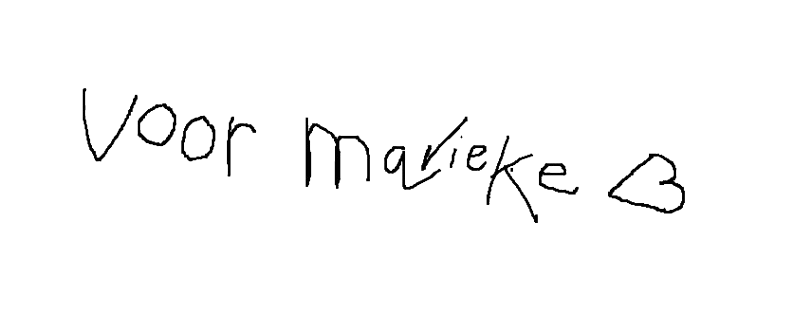 Voor marieke <3